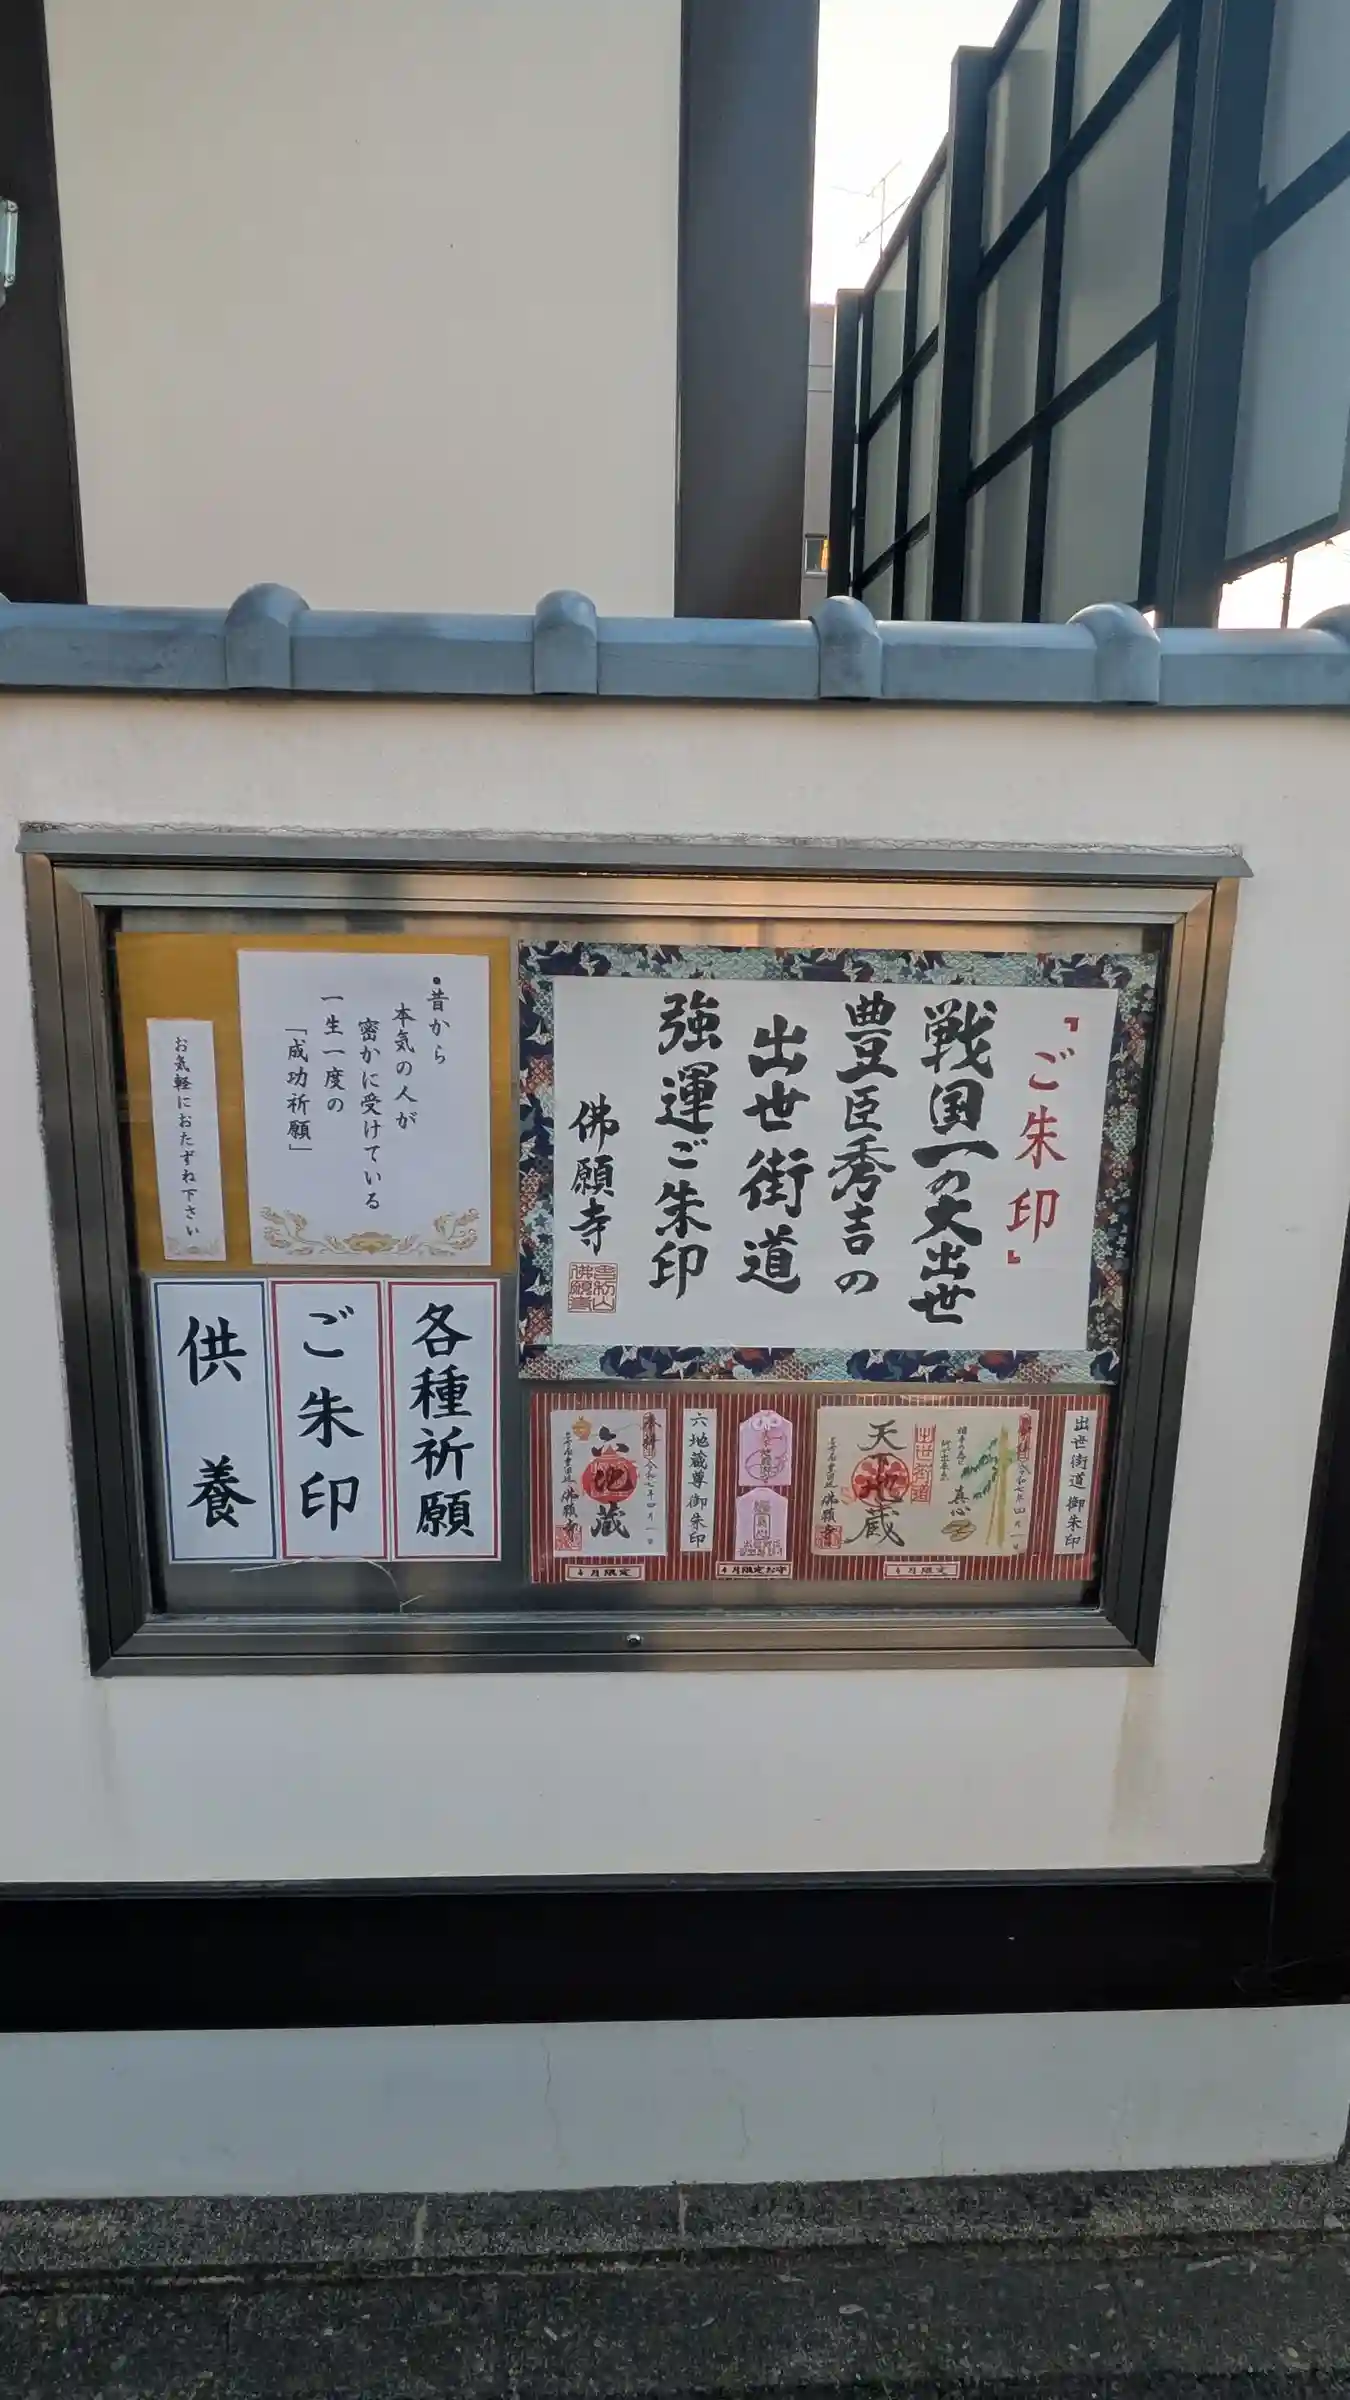 「ご朱印」
戦国一の大出世
豊臣秀吉の
出世街道
強運ご朱印
佛願寺
・昔から
本気の人が
密かに受けている
一生一度の
「成功祈願」
お気軽におたずね下さい
各種祈願
ご朱印
供養
出世街道 御朱印
令和七年四月一日
真心
出世街道
天下地蔵
佛願寺
4月限定
4月限定お守
六地蔵尊 御朱印
奉拝
令和七年四月一日
六地蔵
佛願寺
4月限定